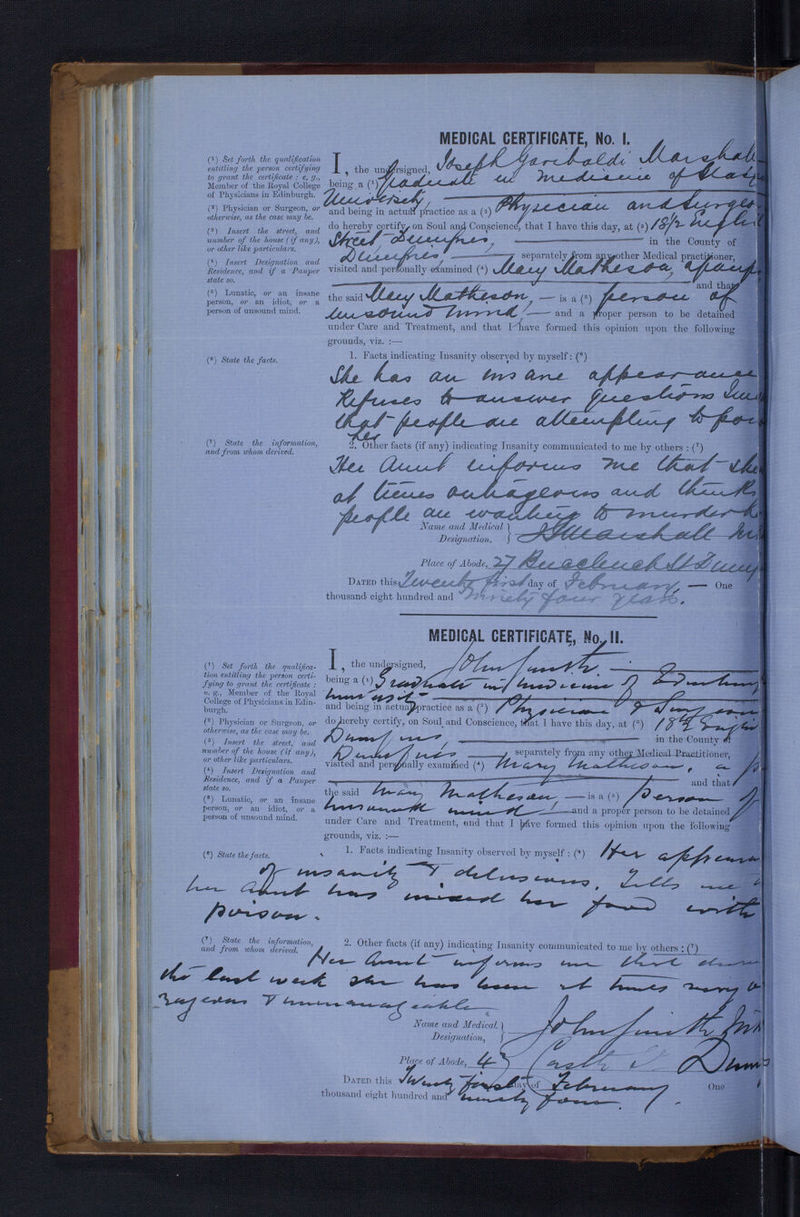 MEDICAL CERTIFICATE, No. I.
(1) Set forth the qualification
entitling the person certifying
to grant the certificate : e. g.,
Member of the Royal College
of Physicians in Edinburgh.
(2) Physician or Surgeon, or
otherwise, as the case may be.
(3) Insert the street, and
number of the house (if any),
or other like particulars.
(4) Insert Designation and
Residence, and if a Pauper
state so.
(5) Lunatic, or an insane
person, or an idiot, or a
person of unsound mind.
(6) State the facts.
(7) State the information,
and from whom derived.
I, the undersigned, Joseph Garibaldi Marshall
being a (1) Graduate in medicine of
University,
and being in actual practice as a (2) Physician and
do hereby certify, on Soul and Conscience, that I have this day, at (3) 18/2
Street Dumfries, in the County of
Dumfries, separately from any other Medical practitioner,
visited and personally examined (4) Mary Matheson, a
and that
the said Mary Matheson, is a (5) person of
unsound mind, and a proper person to be detained
under Care and Treatment, and that I have formed this opinion upon the following
grounds, viz. :—
1. Facts indicating Insanity observed by myself: (6)
She has an insane appearance
Refuses to answer questions
that people are attempting to
her
2. Other facts (if any) indicating Insanity communicated to me by others : (7)
Her Aunt informs me that she
at times outrageous and thinks
people are wanting to murder
Name and Medical
Designation, J G Marshall
Place of Abode, 27 Buccleuch St
DATED this Twenty first day of February, — One
thousand eight hundred and Ninety four years.
MEDICAL CERTIFICATE, No. II.
(1) Set forth the qualifica-
tion entitling the person certi-
fying to grant the certificate :
e. g., Member of the Royal
College of Physicians in Edin-
burgh.
(2) Physician or Surgeon, or
otherwise, as the case may be.
(3) Insert the street, and
number of the house (if any),
or other like particulars.
(4) Insert Designation and
Residence, and if a Pauper
state so.
(5) Lunatic, or an insane
person, or an idiot, or a
person of unsound mind.
(6) State the facts.
(7) State the information,
and from whom derived.
I, the undersigned, John Smith
being a (1) Graduate in medicine of
University
and being in actual practice as a (2) Physician & Surgeon
do hereby certify, on Soul and Conscience, that I have this day, at (3)
Dumfries in the County of
Dumfries separately from any other Medical Practitioner,
visited and personally examined (4) Mary Matheson, a
and that
the said Mary Matheson, — is a (5) Person of
unsound mind and a proper person to be detained
under Care and Treatment, and that I have formed this opinion upon the following
grounds, viz. :—
1. Facts indicating Insanity observed by myself : (6) Her
of insanity & delusions. Tells me
her Aunt has mixed her food with
poison.
2. Other facts (if any) indicating Insanity communicated to me by others : (7)
Her Aunt informs me that
the last week she has been at times very
& unmanageable
Name and Medical
Designation, John Smith
Place of Abode, Castle St
DATED this Twenty first day of February One
thousand eight hundred and ninety four.